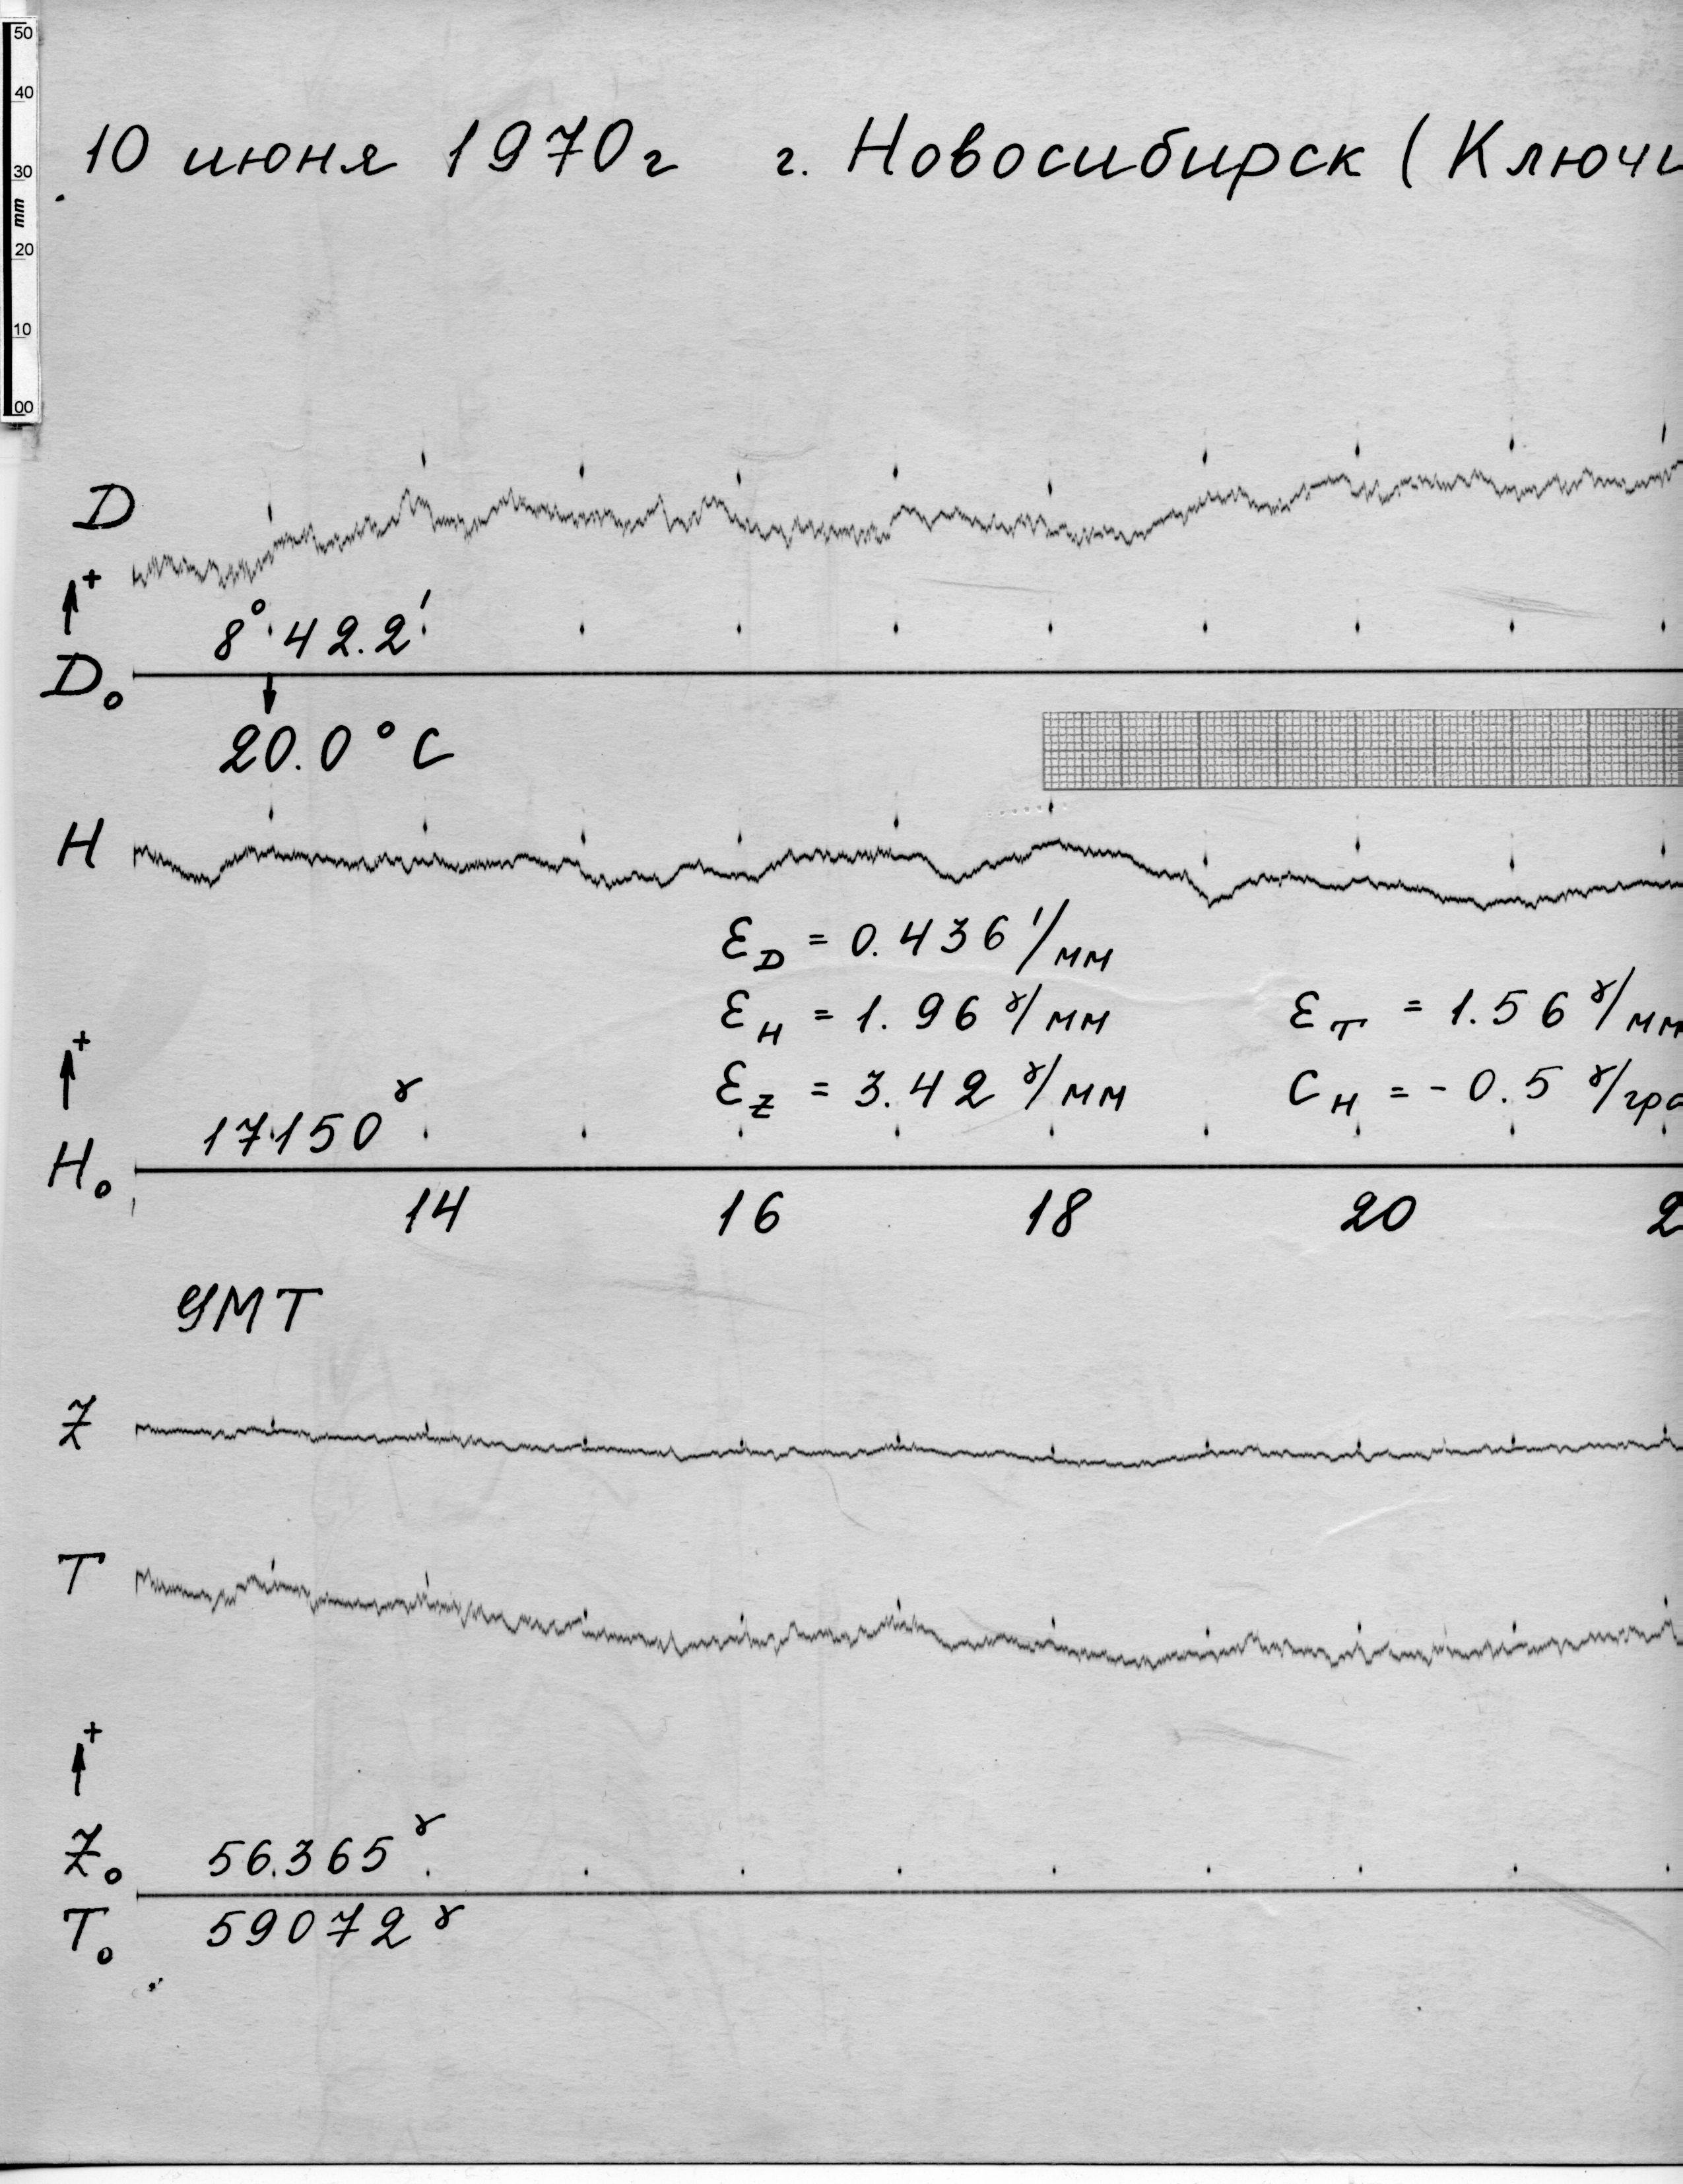 50
40
30
mm
20
10
00
10 июня 1970г г. Новосибирск (Ключи
D
+
8° 42.2'
D₀
20.0°C
H
Ɛ_D = 0.436'/мм
Ɛ_H = 1.96 ɣ/мм Ɛ_T = 1.56 ɣ/мм
Ɛ_Z = 3.42 ɣ/мм C_H = -0.5 ɣ/гра
+
17150 ɣ
H₀
14 16 18 20 2
УМТ
Z
T
+
Z₀ 56365 ɣ
T₀ 59072 ɣ